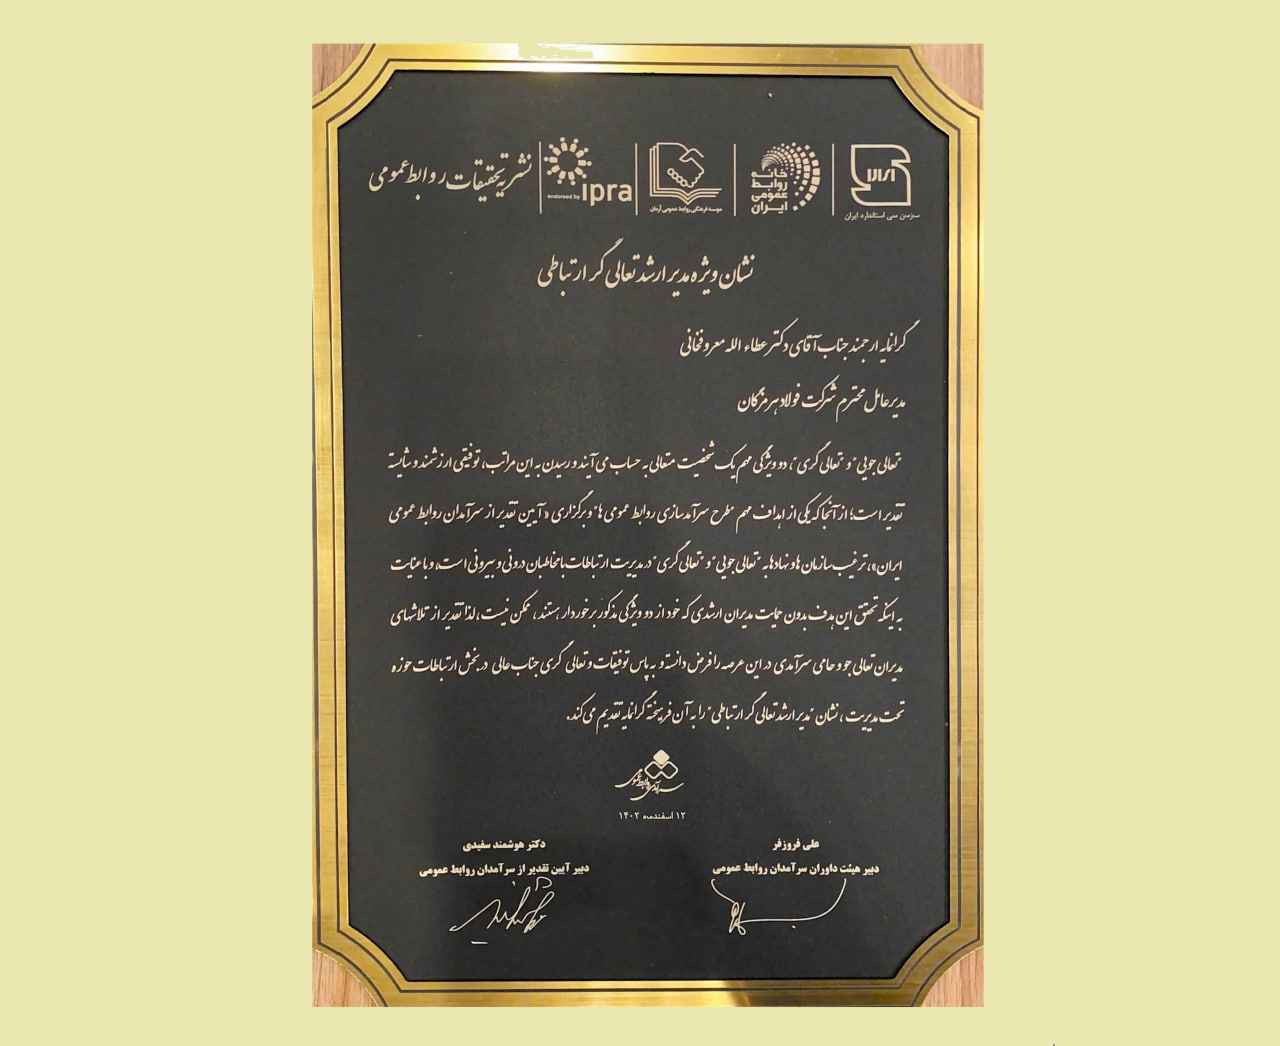 سازمان ملی استاندارد ایران
خانه روابط عمومی ایران
موسسه فرهنگی روابط عمومی آرمان
endorsed by ipra
نشریه تحقیقات روابط عمومی
نشان ویژه مدیر ارشد تعالی گر ارتباطی
گرانمایه ارجمند جناب آقای دکتر عطاء الله معروفخانی
مدیرعامل محترم شرکت فولاد هرمزگان
"تعالی جویی" و "تعالی گری"، دو ویژگی مهم یک شخصیت متعالی به حساب می آیند و رسیدن به این مراتب، توفیقی ارزشمند و شایسته
تقدیر است؛ از آنجا که یکی از اهداف مهم "طرح سرآمدسازی روابط عمومی ها" و برگزاری «آیین تقدیر از سرآمدان روابط عمومی
ایران»، ترغیب سازمان ها و نهادها به "تعالی جویی" و "تعالی گری" در مدیریت ارتباطات با مخاطبان درونی و بیرونی است، و با عنایت
به اینکه تحقق این هدف بدون حمایت مدیران ارشدی که خود از دو ویژگی مذکور برخوردار هستند، ممکن نیست، لذا تقدیر از تلاشهای
مدیران تعالی جو و حامی سرآمدی در این عرصه را فرض دانسته و به پاس توفیقات و تعالی گری جناب عالی در بخش ارتباطات حوزه
تحت مدیریت، نشان "مدیر ارشد تعالی گر ارتباطی" را به آن فرهیخته گرانمایه تقدیم می کند.
سرآمدی روابط عمومی
۱۲ اسفندماه ۱۴۰۲
علی فروزفر
دبیر هیئت داوران سرآمدان روابط عمومی
دکتر هوشمند سفیدی
دبیر آیین تقدیر از سرآمدان روابط عمومی